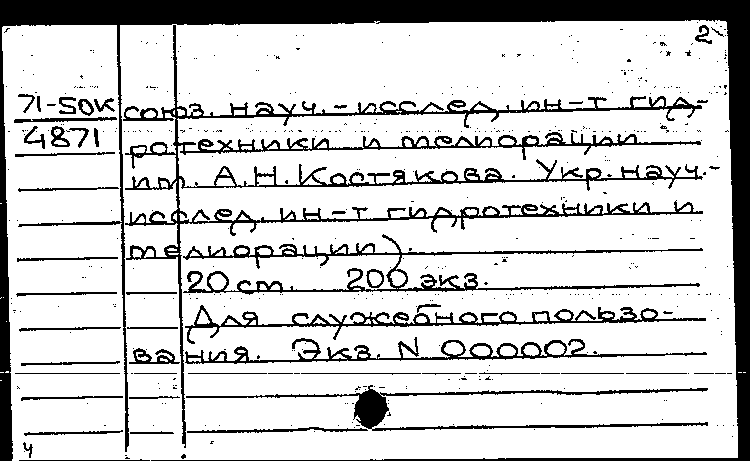 2
71-50К союз. науч.-исслед. ин-т гид-
4871 ротехники и мелиорации
им. А.Н.Костякова. Укр.науч.-
исслед. ин-т гидротехники и
мелиорации).
20 см. 200 экз.
Для служебного пользо-
вания. Экз. N 000002.
ч